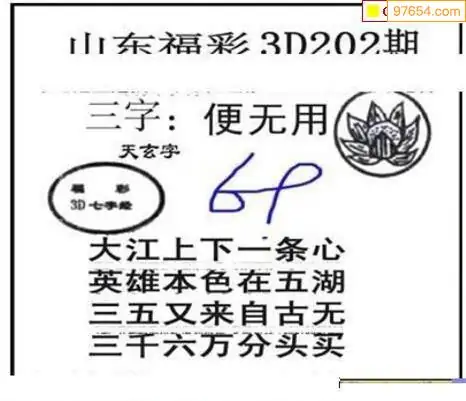 97654.com
山东福彩3D202期
三字：便无用
天玄字
福彩
3D七字经
大江上下一条心
英雄本色在五湖
三五又来自古无
三千六万分头买